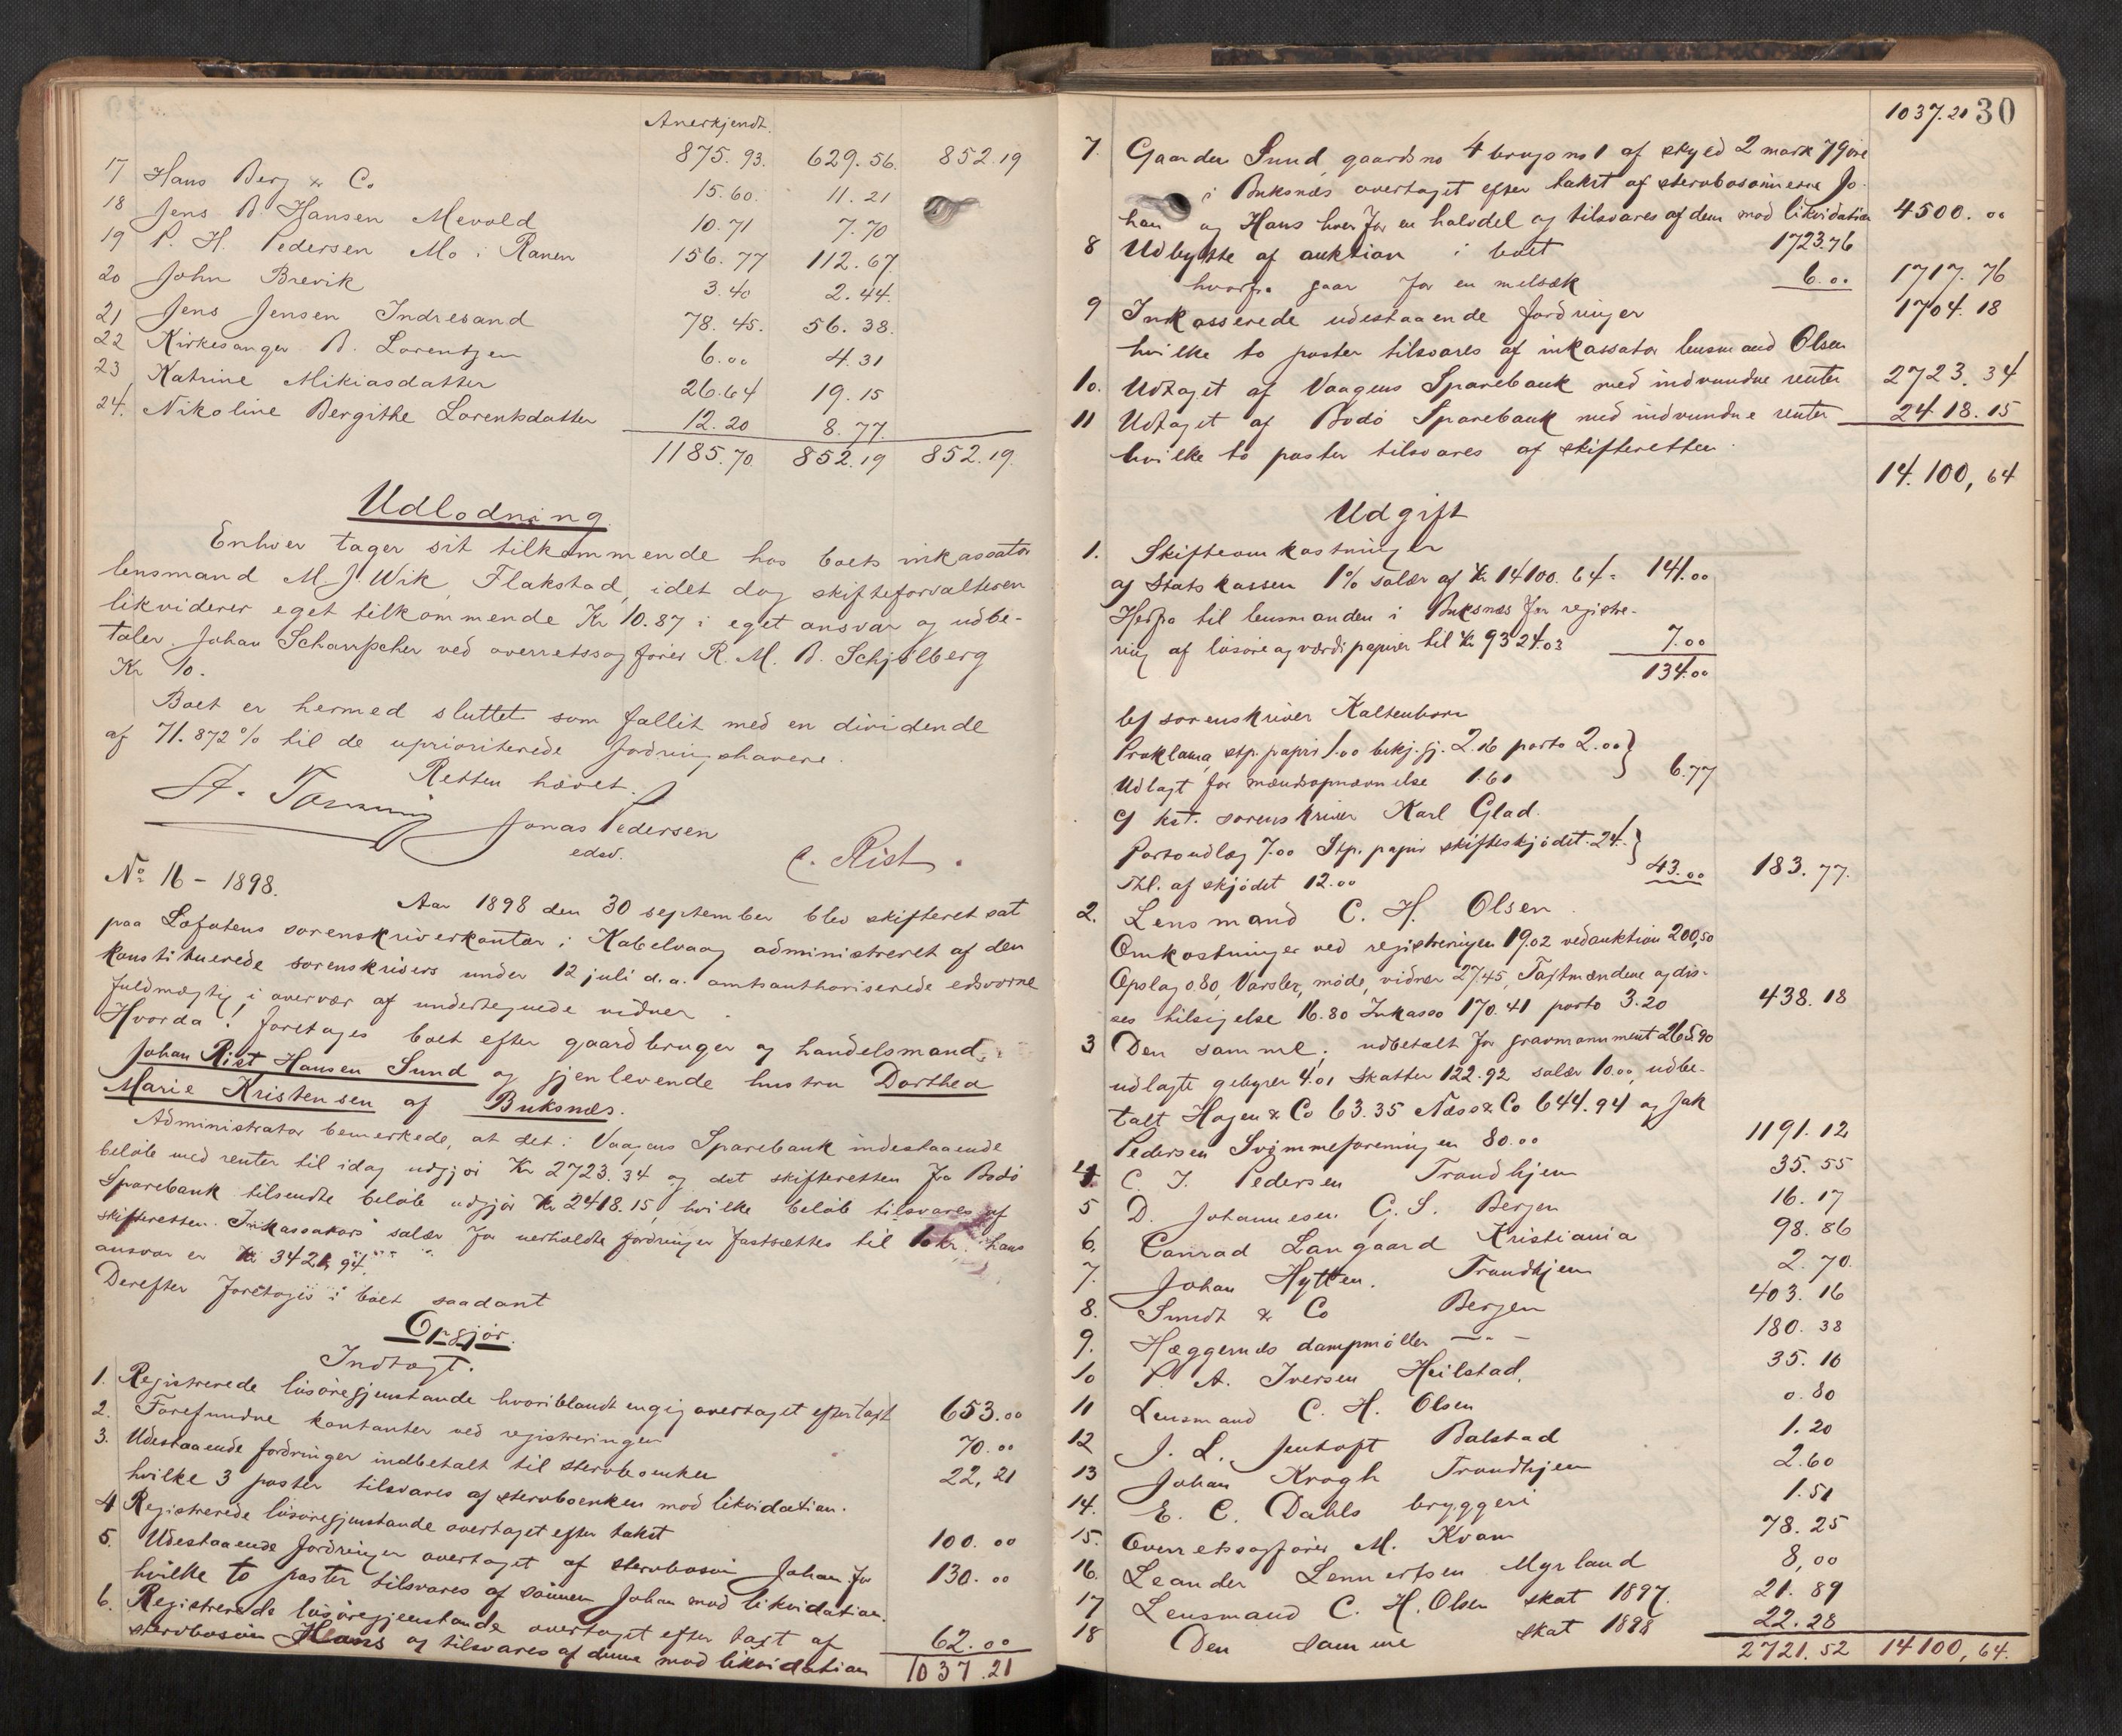 Anerkjendt.
875.93. 629.56. 852.19
17 Hans Berg & Co 15.60. 11.21
18 Jens B. Hansen Mevold 10.71 7.70
19 P. H. Pedersen Mo i Ranen 156.77 112.67.
20 John Brevik 3.40 2.44.
21 Jens Jensen Indresand 78.45. 56.38.
22 Kirkesanger B. Lorentzen 6.00 4.31
23 Katrine Mikiasdatter 26.64 19.15
24. Nikoline Bergithe Lorentsdatter 12.20 8.77.
1185.70. 852.19 852.19.
Udlodning
Enhver tager sit tilkommende hos boets inkassator
lensmand M. J. Wik, Flakstad, idet dog skifteforvalteren
likviderer eget tilkommende Kr 10.87 i eget ansvar og udbe-
taler Johan Schampcher ved overretssagfører R. M. B. Schjølberg
Kr 10.
Boet er hermed sluttet som fallit med en dividende
af 71.872% til de uprioriterede fordringshavere.
Retten hævet.
Jonas Pedersen
edsv.
C. Rist.
No 16 – 1898.
Aar 1898 den 30 september blev skifteret sat
paa Lofotens sorenskriverkontor i Kabelvaag administreret af den
konstituerede sorenskrivers under 12 juli d.a. amtsauthoriserede edsvorne
fuldmægtig i overvær af undertegnede vidner.
Hvorda! foretoges boet efter gaardbruger og handelsmand
Johan Rist Hansen Sund og gjenlevende hustru Dorthea
Marie Kristensen af Buksnæs.
Administrator bemerkede, at det i Vaagens Sparebank indestaaende
beløb med renter til idag udgjør Kr 2723.34 og det skifteretten fra Bodø
Sparebank tilsendte beløb udgjør Kr 2418.15, hvilke beløb tilsvares af
skifteretten. Inkassators salær for uerholdte fordringer fastsættes til 10 kr. hans
ansvar er Kr 3421,94.
Derefter foretoges i boet saadant
Opgjør.
Indtægt.
1. Registrerede løsøregjenstande hvoriblandt en gig overtaget efter taxt 653.00
2. Forefundne kontanter ved registreringen 70.00
3. Udestaaende fordringer indbetalt til stervboenken 22,21
hvilke 3 poster tilsvares af stervboenken mod likvidation.
4 Registrerede løsøregjenstande overtaget efter takst 100.00
5. Udestaaende fordringer overtaget af stervbosøn Johan for 130.00
hvilke to poster tilsvares af sønnen Johan mod likvidation.
6. Registrerede løsøregjenstande overtaget efter taxt af
stervbosøn Hans og tilsvares af denne mod likvidation 62.00
1037.21
1037.21 30
7. Gaarden Sund, gaardsno 4 brugsno 1 af skyld 2 mark 79 øre
i Buksnæs overtaget efter takst af stervbosønnerne Jo-
han og Hans hver for en halvdel og tilsvares af dem mod likvidation 4500.00
8 Udbytte af auktion i boet 1723.76
hvorfra gaar for en melsæk 6.00 1717.76
9 Inkasserede udestaaende fordringer 1704.18
hvilke to poster tilsvares af inkassator lensmand Olsen
10. Udtaget af Vaagens Sparebank med indvundne renter 2723.34
11 Udtaget af Bodø Sparebank med indvundne renter 2418.15
hvilke to poster tilsvares af skifteretten.
14.100,64
Udgift
1. Skifteomkostninger
a) Statskassen 1% salær af Kr 14100.64 = 141.00
Herfra til lensmanden i Buksnæs for registre-
ring af løsøre og værdipapirer til Kr 9324.03 7.00
134.00
b) sorenskriver Kaltenborn
Proklama, stp. papir 1.00 bekj.gj. 2.16 porto 2.00}
Udlagt for mændsopnævnelse 1.61 6.77
c) kst. sorenskriver Karl Glad.
Portoudlæg 7.00 Stp. papir skifteskjødet 24.}
Thl. af skjødet 12.00 43.00 183.77.
2. Lensmand C. H. Olsen
Omkostninger ved registreringen 19.02 ved auktion 200,50
Opslag 0.80, Varsler, møde, vidner 27.45, Taxtmændene og dis-
ses tilsigelse 16.80 Inkasso 170.41 porto 3.20 438.18
3 Den samme, udbetalt for gravmonument 265.90
udlagte gebyrer 4.01 Skatter 122.92 salær 10.00, udbe-
talt Hagen & Co 63.35 Næss & Co 644.94 og Jak
Pedersen Svømmeforeningen 80.00 1191.12
4. C. I. Pedersen Trondhjem 35.55
5 D. Johannesen G. S. Bergen 16.17
6. Conrad Langaard Kristiania 98.86
7. Johan Hytten. Trondhjem 2.70.
8. Smidt & Co Bergen 403.16
9. Hæggernæs dampmøller —"— 180.38
10 P. A. Iversen Heilstad. 35.16
11 Lensmand C. H. Olsen 0.80
12 J. L. Jentoft Balstad 1.20
13 Johan Krogh Trondhjem 2.60
14. E. C. Dahls bryggeri 1.51
15. Overretssagfører M. Kvam 78.25
16. Leander Lennertsen Myrland 8,00
17 Lensmand C. H. Olsen skat 1897. 21.89
18 Den samme skat 1898 22.28
2721.52 14100,64.